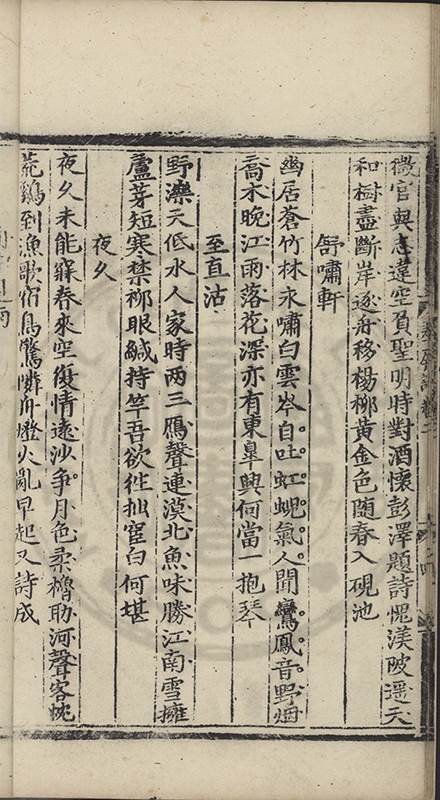 微官與志違空負聖明時對酒懷彭澤題詩愧渼陂遥天
和樹盡斷岸逐舟移楊柳黄金色随春入硯池
舒嘯軒
幽居蒼竹林永嘯白雲岑自吐虹蜺氣人聞鸞鳳音野烟
喬木晚江雨落花深亦有東皐興何當一抱琴
至直沽
野濼天低水人家時两三鴈聲連漠北魚味勝江南雪擁
蘆芽短寒禁柳眼緘持竿吾欲徃拙宦白何堪
夜久
夜久未能寐春來空復情遠沙争月色柔櫓助河聲客枕
荒鷄到漁歌宿鳥驚憐舟燈火亂早起又詩成